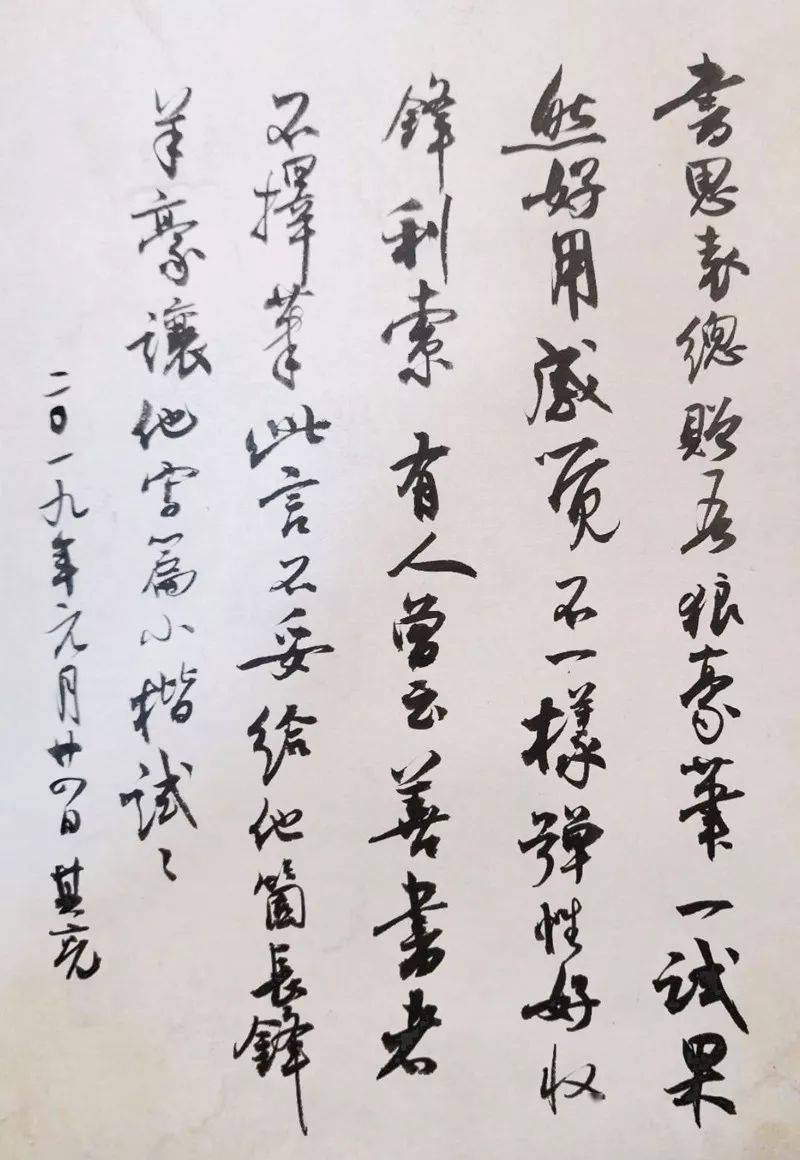 書恩袁總贈吾狼豪筆一試果
然好用感覺不一樣彈性好收
鋒利索有人曾云善書者
不擇筆此言不妥給他箇長鋒
羊豪讓他寫篇小楷試々
二〇一九年元月廿四日其亮